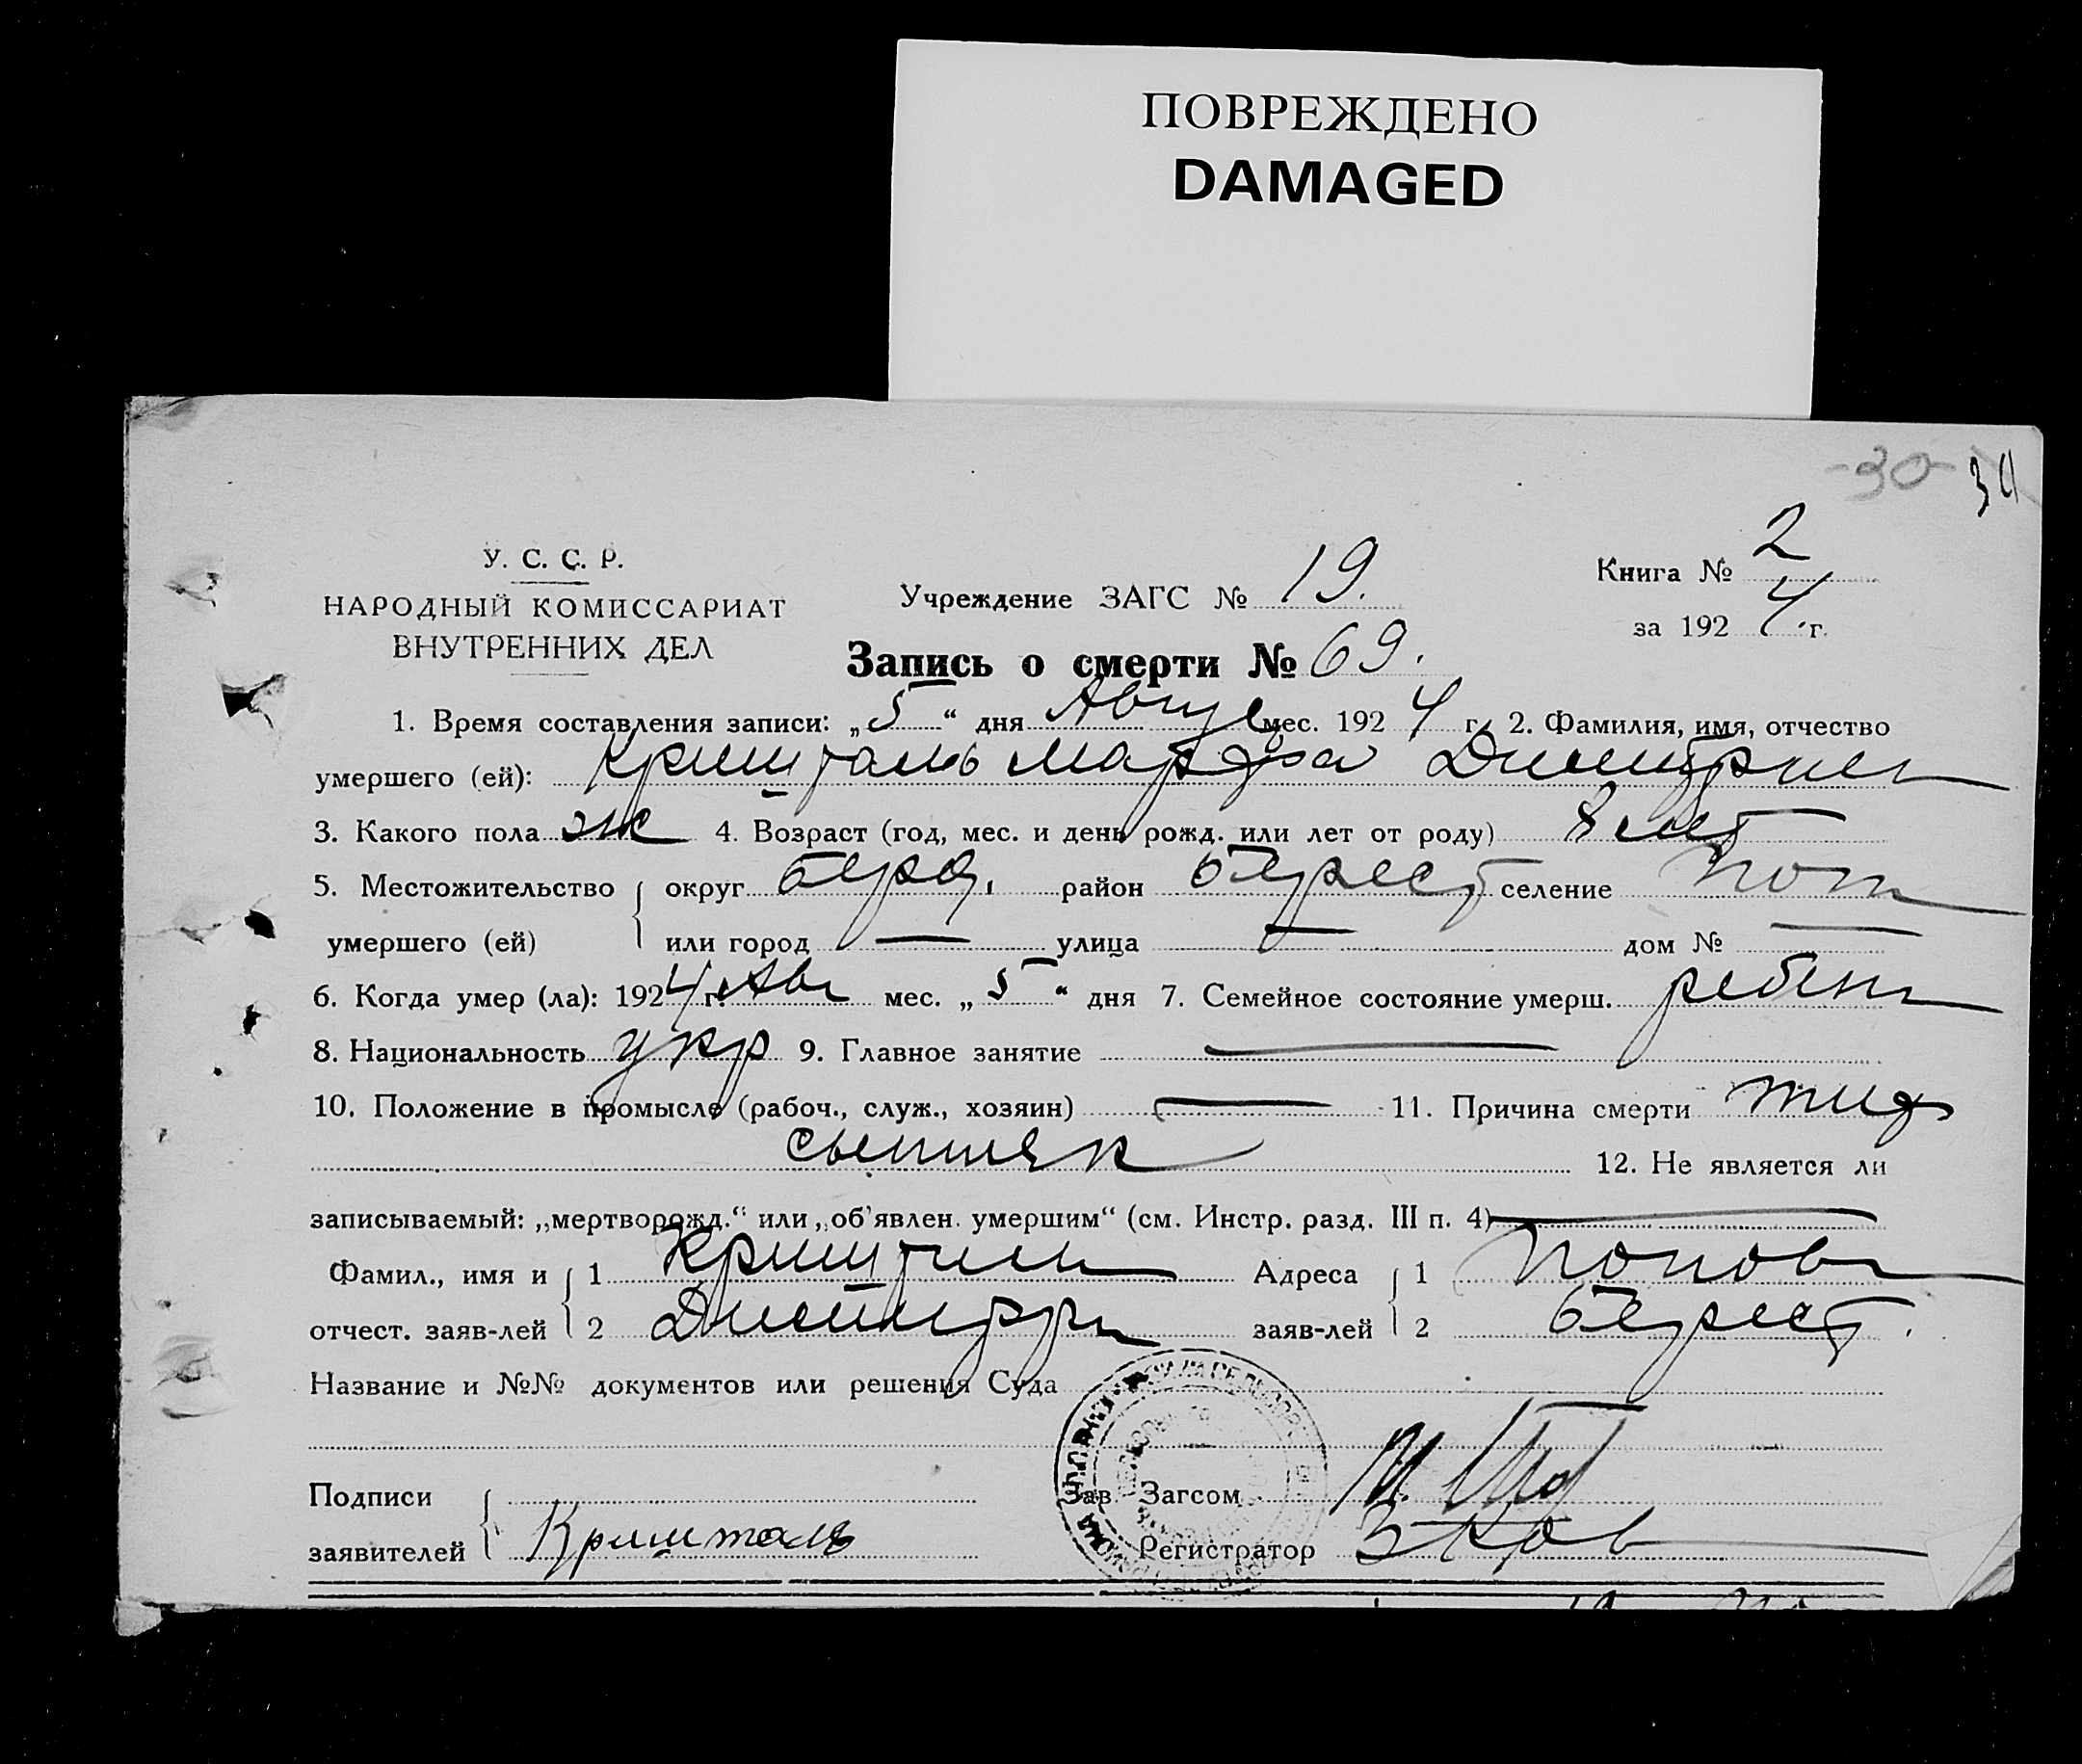 ПОВРЕЖДЕНО
DAMAGED
-30-
У. С. С. Р.
НАРОДНЫЙ КОМИССАРИАТ
ВНУТРЕННИХ ДЕЛ
Учреждение ЗАГС № 19.
Книга № 2
за 1924 г.
Запись о смерти № 69.
1. Время составления записи: „5“ дня Авгус мес. 1924 г. 2. Фамилия, имя, отчество
умершего (ей): Кришталь Марфа Димитрием
3. Какого пола ж 4. Возраст (год, мес. и день рожд. или лет от роду) 8 лет
5. Местожительство умершего (ей) { округ Берд. район Берест селение Поп
или город — улица — дом № —
6. Когда умер (ла): 1924 г. Авг мес. „5“ дня 7. Семейное состояние умерш. ребен
8. Национальность укр 9. Главное занятие —
10. Положение в промысле (рабоч., служ., хозяин) — 11. Причина смерти тиф
сыпняк 12. Не является ли
записываемый: „мертворожд.“ или „об’явлен. умершим“ (см. Инстр. разд. III п. 4) —
Фамил., имя и { 1 Криштал Адреса { 1 Попов
отчест. заяв-лей { 2 Димитри заяв-лей { 2 Берест.
Название и №№ документов или решения Суда
Подписи Зав. Загсом
заявителей { Кришталь Регистратор